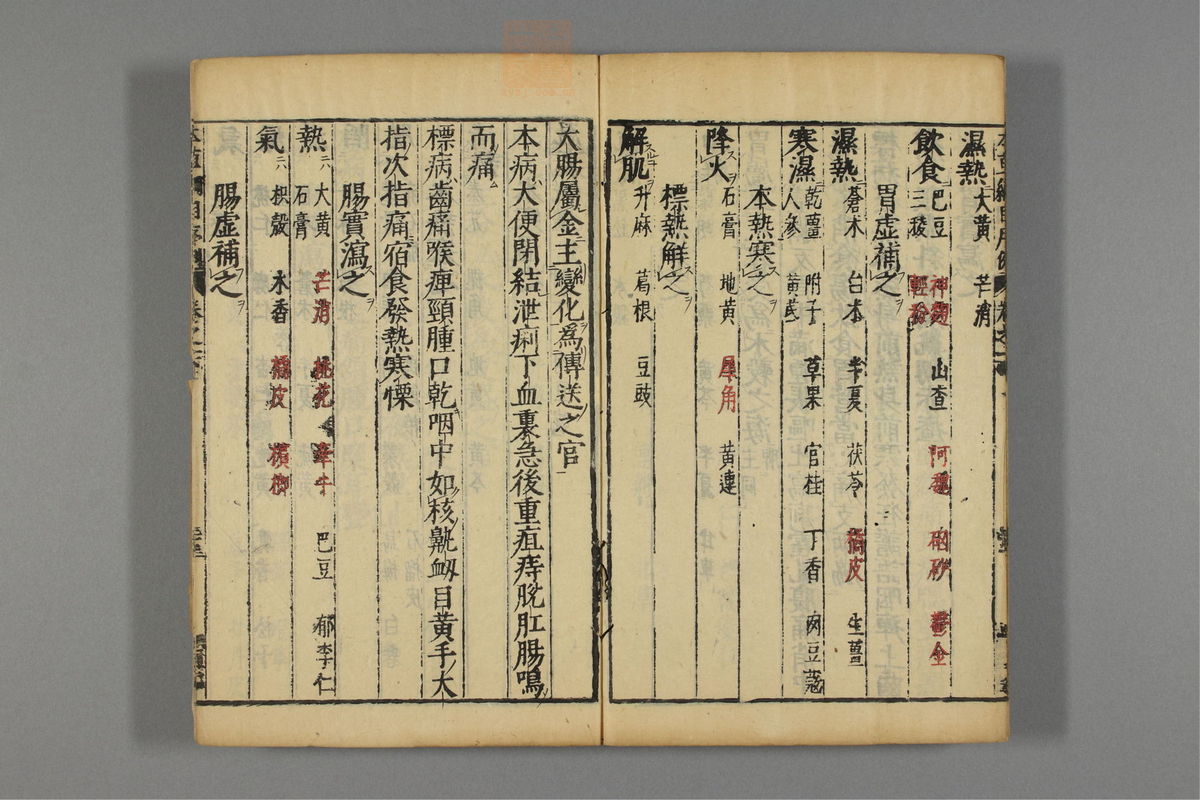 濕熱 大黃 芒消
飲食 巴豆 神麴 山查 阿魏 硇砂 鬱金
三稜 輕粉
胃虛補之
濕熱 蒼朮 白朮 半夏 茯苓 橘皮 生薑
寒濕 乾薑 附子 草果 官桂 丁香 肉豆蔻
人參 黃芪
本熱寒之
降火 石膏 地黃 犀角 黃連
標熱解之
解肌 升麻 葛根 豆豉
大腸屬金主變化爲傳送之官
本病大便閉結泄痢下血裏急後重疽痔脫肛腸鳴
而痛
標病齒痛喉痺頸腫口乾咽中如核鼽衂目黃手大
指次指痛宿食發熱寒慄
腸實瀉之
熱 大黃 芒消 桃花 牽牛 巴豆 郁李仁
石膏
氣 枳殼 木香 橘皮 檳榔
腸虛補之